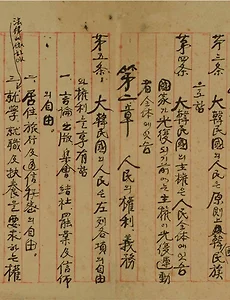 第三条 大韓民國의人民은原則上韓民族
第四条 大韓民國의主權은人民全体에잇음
國家가光復되기前에는主權이光復運動
者全体에잇음
第二章 人民의權利義務
第五条 大韓民國의人民은左列各項의自由
와權利를享有함
一、言論出版集會結社罷業及信仰
의自由。
二、居住旅行及通信秘密의自由。
三、就學就職及扶養을要求하는權